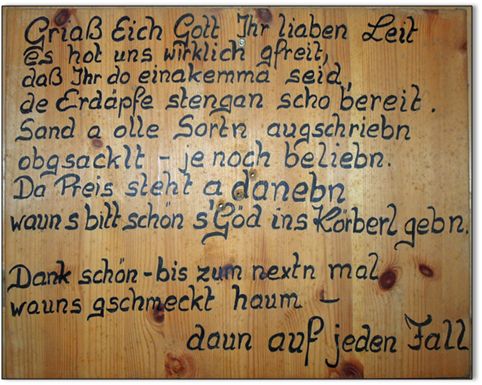 Griaß Eich Gott Ihr liaben Leit
es hot uns wirklich gfreit,
daß Ihr do einakemma seid,
de Erdäpfe stengan scho bereit.
Sand a olle Sortn augschriebn
obgsacklt - je noch beliebn.
Da Preis steht a danebn
wauns bitt schön s'Göd ins Körberl gebn.
Dank schön - bis zum nextn mal
wauns gschmeckt haum -
daun auf jeden Fall